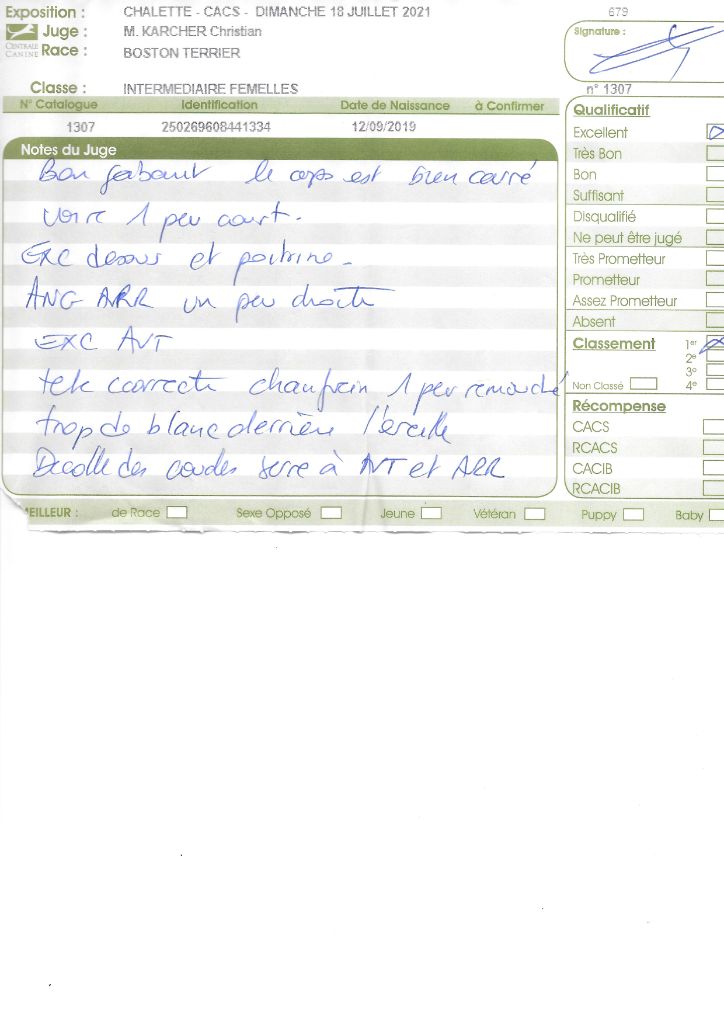 Exposition : CHALETTE - CACS - DIMANCHE 18 JUILLET 2021
679
Juge : M. KARCHER Christian
Signature :
CENTRALE CANINE
Race : BOSTON TERRIER
Classe : INTERMEDIAIRE FEMELLES
n° 1307
N° Catalogue Identification Date de Naissance à Confirmer
1307 250269608441334 12/09/2019
Notes du Juge
Bon gabarit le corps est bien carré
voire 1 peu court.
EXC dessus et poitrine.
ANG ARR un peu droite
EXC AVT
tete correcte chanfrein 1 peu remouché
trop de blanc derrière l'oreille
Decolle des coudes serre à AVT et ARR
Qualificatif
Excellent
Très Bon
Bon
Suffisant
Disqualifié
Ne peut être jugé
Très Prometteur
Prometteur
Assez Prometteur
Absent
Classement 1er
2e
3e
Non Classé 4e
Récompense
CACS
RCACS
CACIB
RCACIB
EILLEUR : de Race Sexe Opposé Jeune Vétéran Puppy Baby